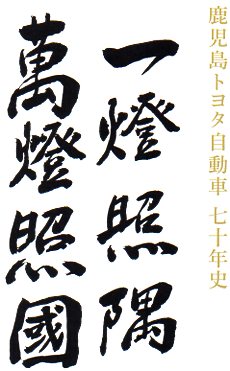 鹿児島トヨタ自動車 七十年史
一燈照隅
萬燈照國